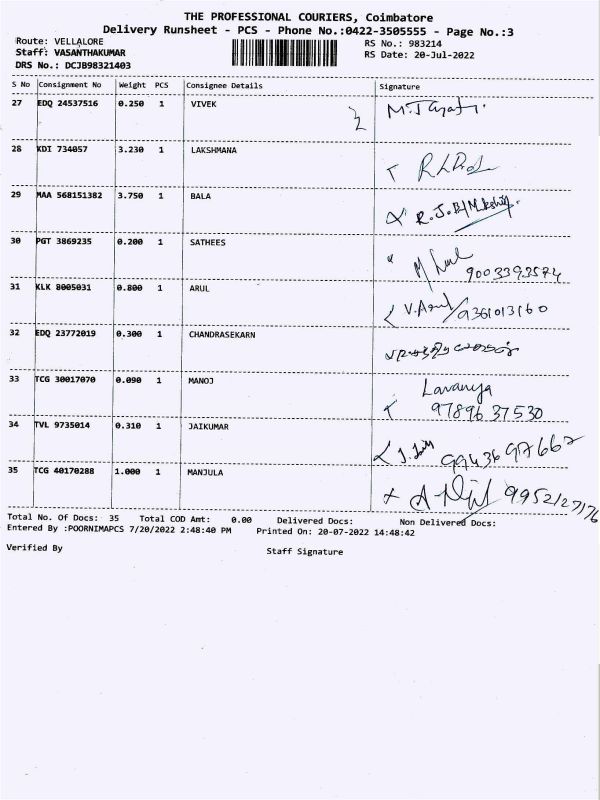 THE PROFESSIONAL COURIERS, Coimbatore
Delivery Runsheet - PCS - Phone No.:0422-3505555 - Page No.:3
Route: VELLALORE RS No.: 983214
Staff: VASANTHAKUMAR RS Date: 20-Jul-2022
DRS No.: DCJB98321403
S No Consignment No Weight PCS Consignee Details Signature
27 EDQ 24537516 0.250 1 VIVEK
28 KDI 734057 3.230 1 LAKSHMANA
29 MAA 568151382 3.750 1 BALA
30 PGT 3869235 0.200 1 SATHEES 9003393574
31 KLK 8005031 0.800 1 ARUL V.Arul/9361013160
32 EDQ 23772019 0.300 1 CHANDRASEKARN
33 TCG 30017070 0.090 1 MANOJ Lavanya
9789637530
34 TVL 9735014 0.310 1 JAIKUMAR 9943697667
35 TCG 40170288 1.000 1 MANJULA 9952127176
Total No. Of Docs: 35 Total COD Amt: 0.00 Delivered Docs: Non Delivered Docs:
Entered By :POORNIMAPCS 7/20/2022 2:48:40 PM Printed On: 20-07-2022 14:48:42
Verified By Staff Signature